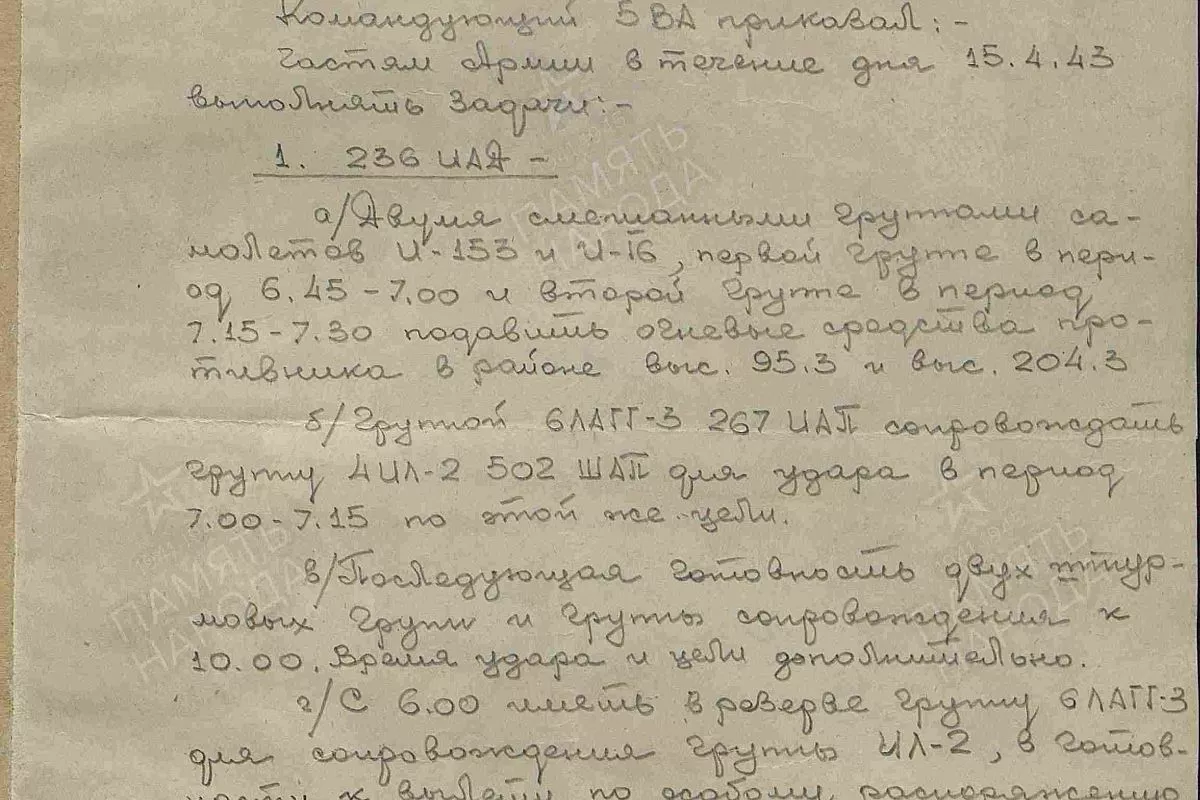 Командующий 5 ВА приказал:-
Частям Армии в течение дня 15.4.43
выполнять задачи:-
1. 236 ИАД -
а/Двумя смешанными группами са-
молетов И-153 и И-16, первой группе в пери-
од 6.45-7.00 и второй группе в период
7.15-7.30 подавить огневые средства про-
тивника в районе выс. 95.3 и выс. 204.3
б/Группой 6 ЛАГГ-3 267 ИАП сопровождать
группу 4 ИЛ-2 502 ШАП для удара в период
7.00-7.15 по этой же цели.
в/Последующая готовность двух штур-
мовых групп и группы сопровождения к
10.00. Время удара и цели дополнительно.
г/С 6.00 иметь в резерве группу 6 ЛАГГ-3
для сопровождения группы ИЛ-2, в готов-
ности к вылету по особому распоряжению
ПАМЯТЬ НАРОДА
ПАМЯТЬ НАРОДА
ПАМЯТЬ НАРОДА